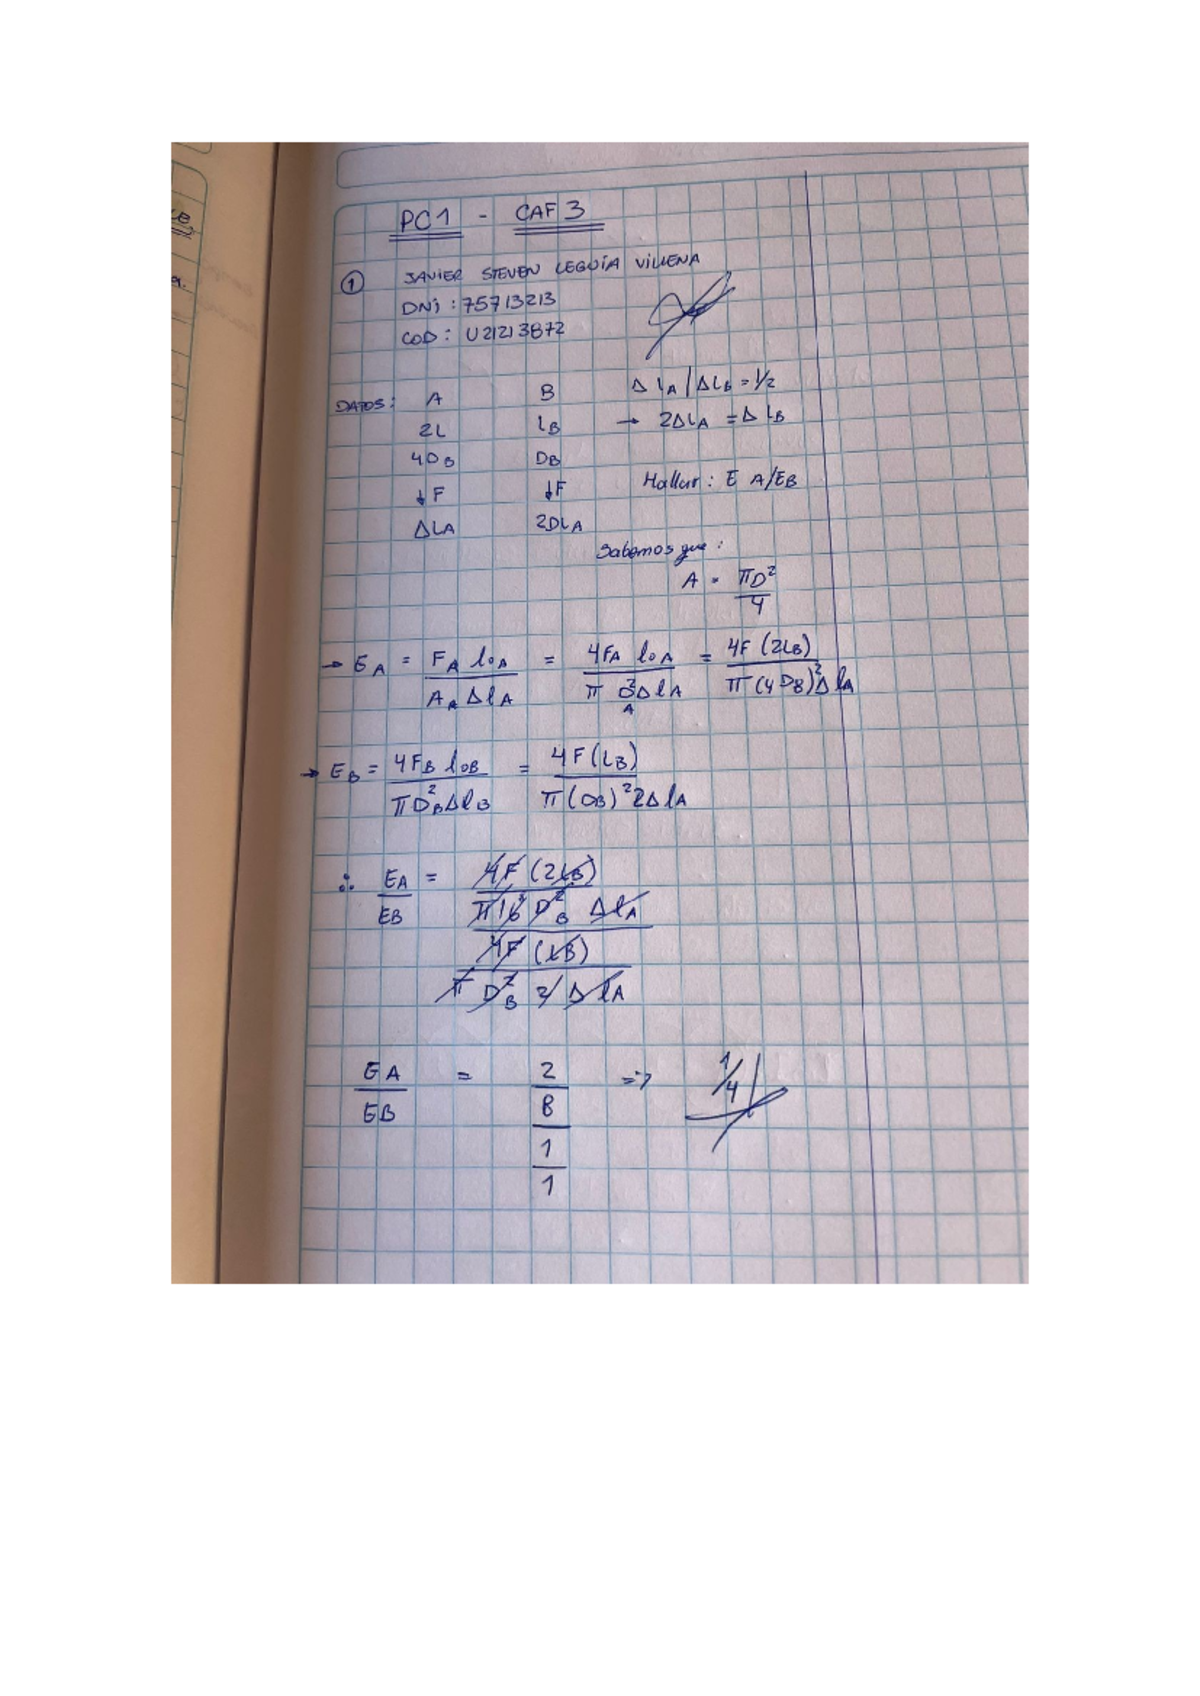 PC1 - CAF 3
① JAVIER STEVEN LEGUÍA VILLENA
DNi : 75713213
COD : U21213872
DATOS: A B Δ LA / ΔLB = 1/2
2L LB → 2ΔLA = Δ LB
4DB DB
↓F ↓F Hallar : E A/EB
ΔLA 2DLA
Sabemos que :
A = πD² / 4
→ EA = FA loA / AA ΔlA = 4FA loA / π D²A ΔlA = 4F (2LB) / π (4DB)² ΔlA
→ EB = 4FB loB / πD²B ΔlB = 4F(LB) / π(DB)² 2ΔlA
∴ EA / EB = 4F (2LB) / π 16 D²B ΔlA / 4F (LB) / π D²B 2 ΔlA
EA / EB = 2 / 8 / 1 / 1 => 1/4